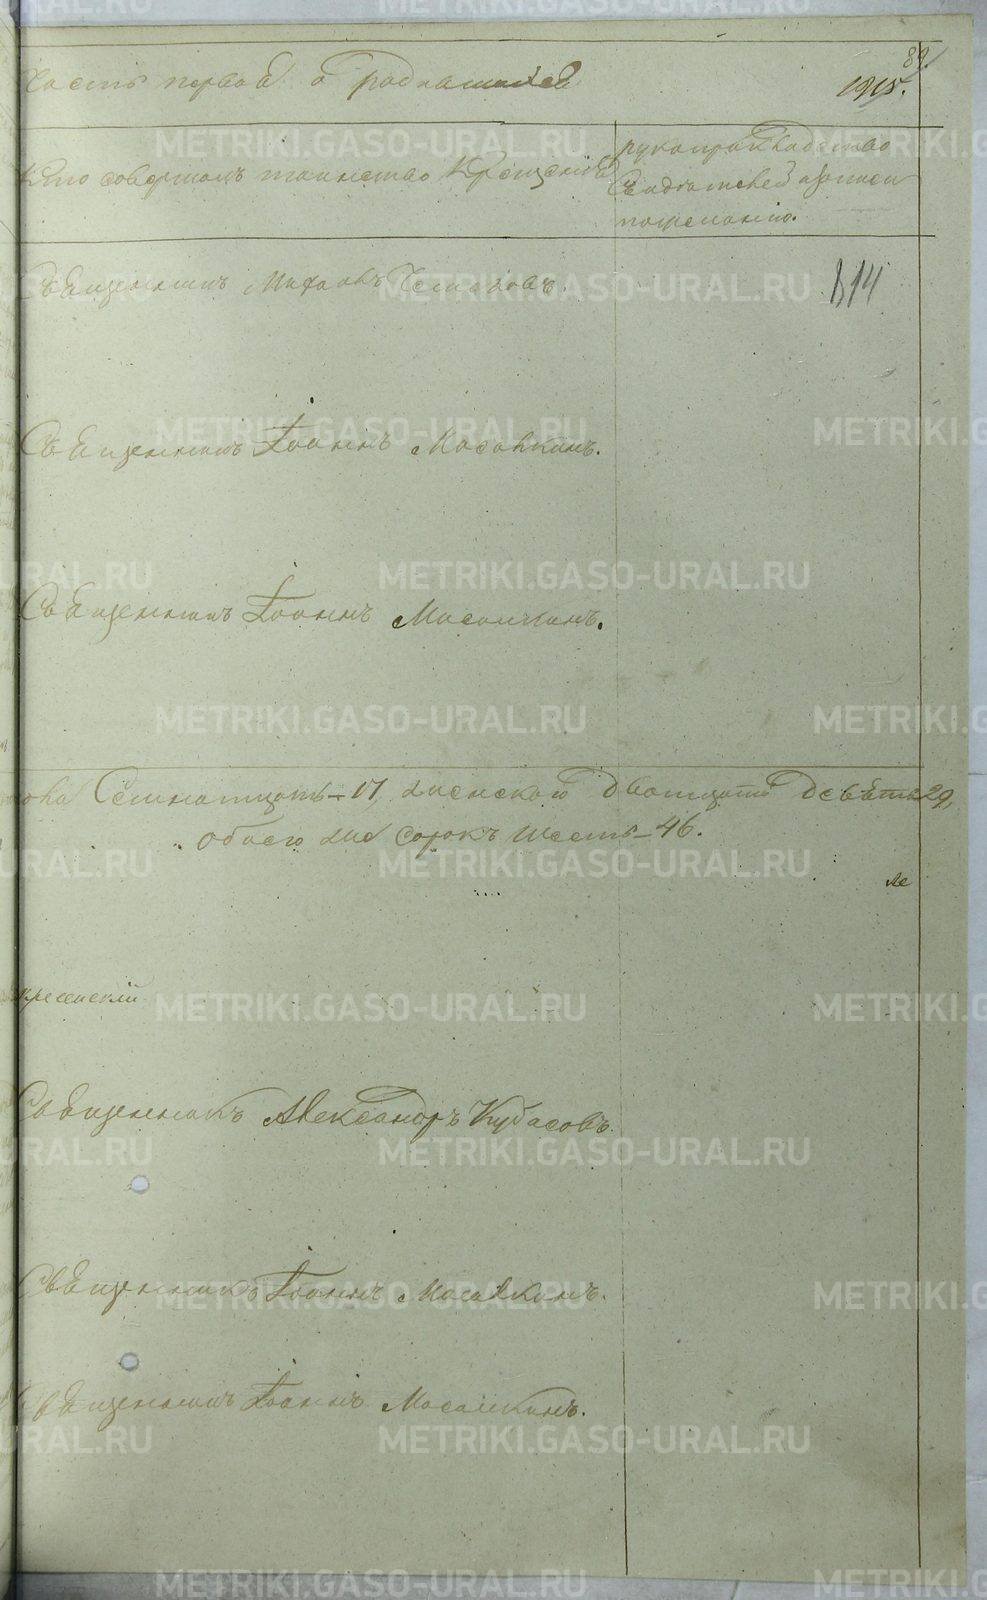 89.
Часть первая о родившихся
1915.
Кто совершалъ таинство Крещенія
рукоприкладство
свидѣтелей записи
по желанію.
Священникъ
814
Священникъ Іоаннъ Масалкинъ.
Священникъ Іоаннъ Масалкинъ.
Семнатцать – 17, женскаго Дватцать Девять 29,
обоего Сорокъ шесть – 46.
Священникъ Александръ Кубасовъ.
Священникъ Іоаннъ Масалкинъ.
Священникъ Іоаннъ Масалкинъ.
METRIKI.GASO-URAL.RU